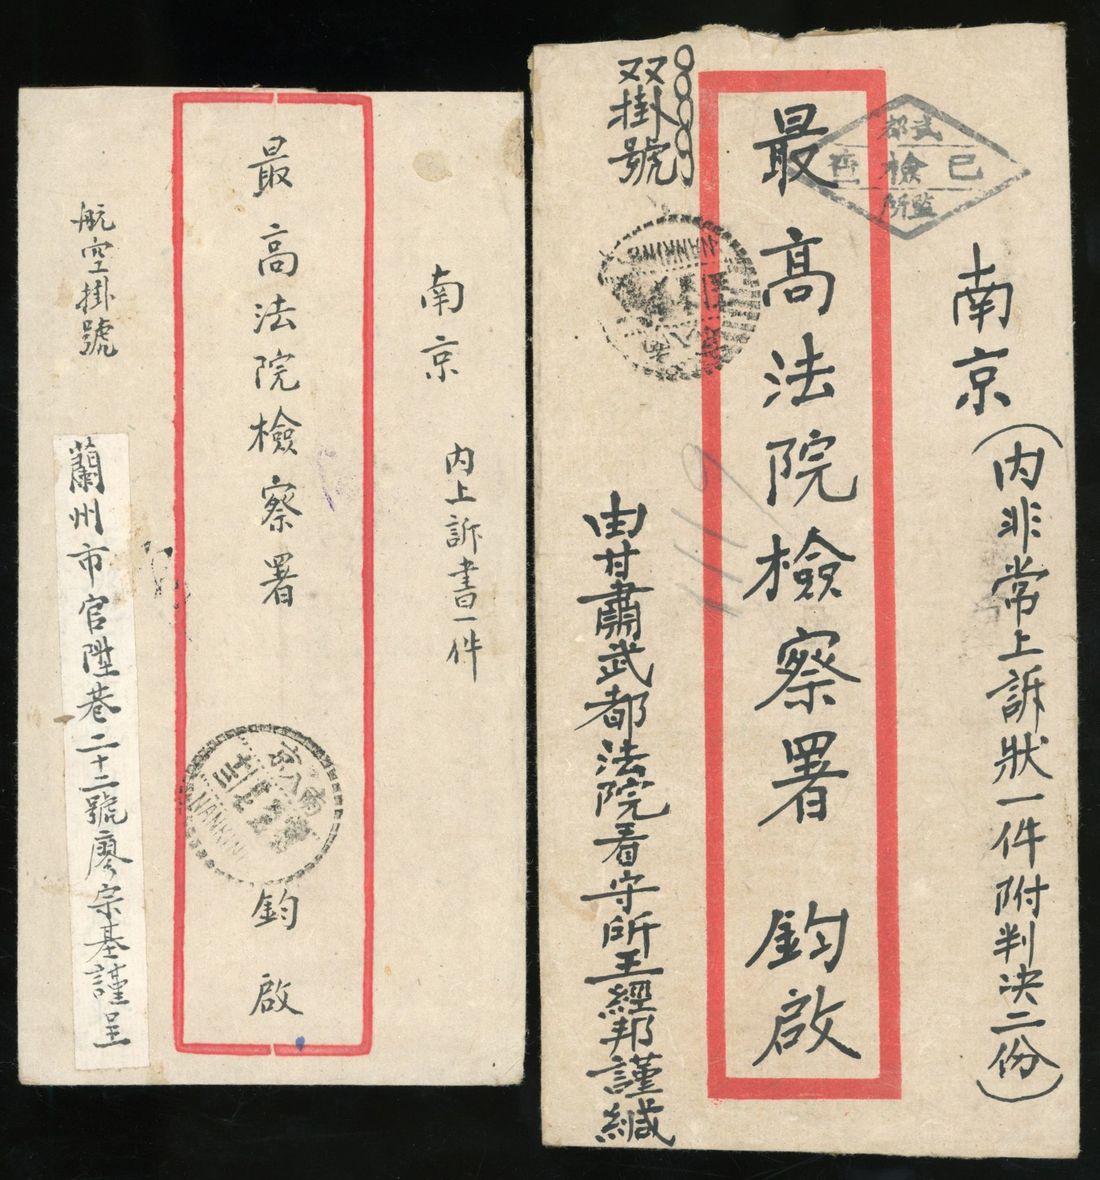 南京
內上訴書一件
最高法院檢察署 鈞啟
航空掛號
蘭州市官陞巷二十二號廖宗基謹呈
南京
NANKIN
南京
(內非常上訴狀一件附判決二份)
最高法院檢察署 鈞啟
双掛號
由甘肅武都法院看守所王經邦謹緘
武都
已檢查
監所
NANKING
1119